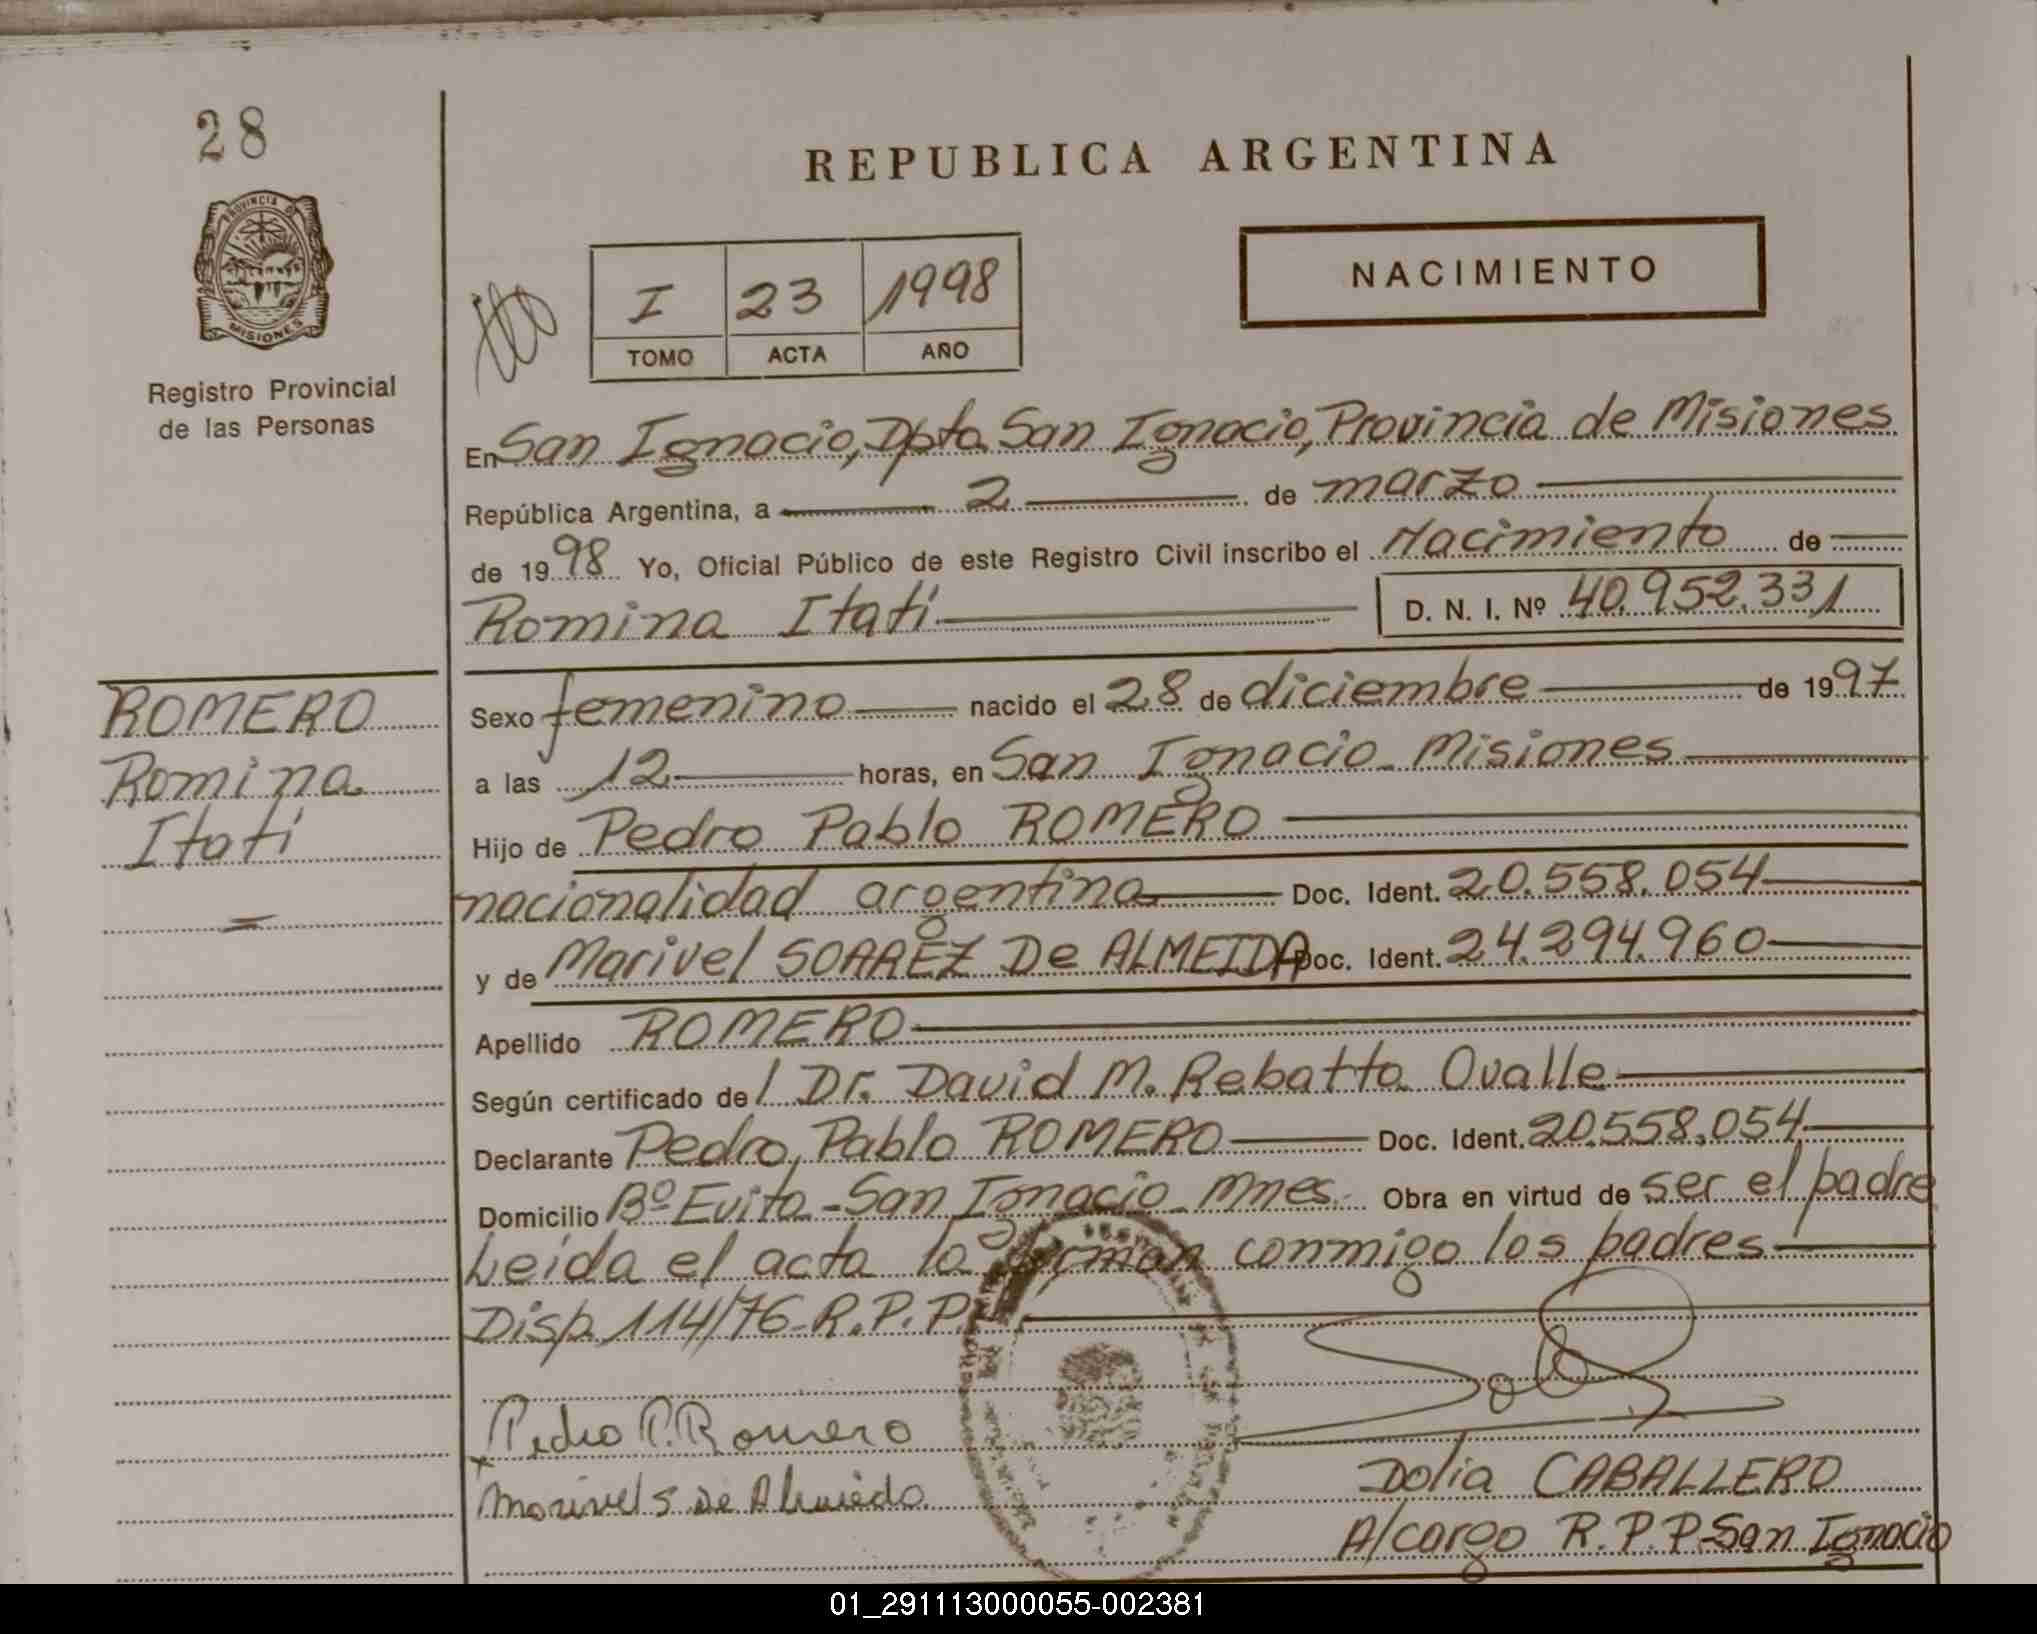 28
REPUBLICA ARGENTINA
PROVINCIA DE
MISIONES
Registro Provincial
de las Personas
I 23 1998
TOMO ACTA AÑO
NACIMIENTO
En San Ignacio, Dpto San Ignacio, Provincia de Misiones
República Argentina, a 2 de marzo
de 1998 Yo, Oficial Público de este Registro Civil inscribo el Nacimiento de
Romina Itatí D. N. I. Nº 40.952.331
ROMERO
Romina
Itatí
Sexo femenino nacido el 28 de diciembre de 1997
a las 12 horas, en San Ignacio - Misiones
Hijo de Pedro Pablo ROMERO
nacionalidad argentina Doc. Ident. 20.558.054
y de Marivel SOAREZ De ALMEIDA Doc. Ident. 24.294.960
Apellido ROMERO
Según certificado del Dr. David M. Rebatta Ovalle
Declarante Pedro Pablo ROMERO Doc. Ident. 20.558.054
Domicilio Bº Evita - San Ignacio - Mnes. Obra en virtud de ser el padre
Leída el acta la firman conmigo los padres
Disp. 114/76 - R.P.P.
Pedro P. Romero
Marivel S De Almeida
Dolia CABALLERO
A/cargo R.P.P. San Ignacio
01_291113000055-002381